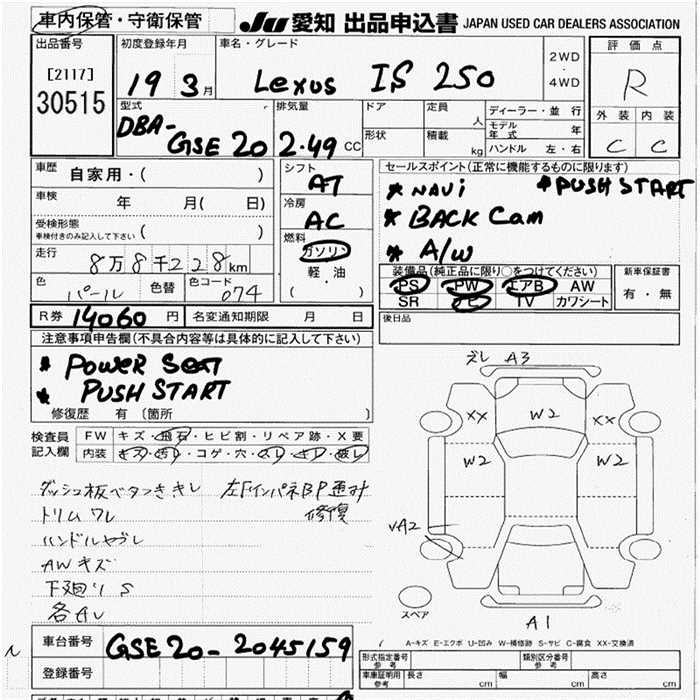 車内保管・守衛保管
JU 愛知 出品申込書 JAPAN USED CAR DEALERS ASSOCIATION
出品番号
[2117]
30515
初度登録年月
19 3月
車名・グレード
Lexus IS 250
2WD
・
4WD
評価点
R
外装 内装
C C
型式
DBA-GSE 20
排気量
2.49 CC
ドア
形状
定員 人
積載 kg
ディーラー・並行
モデル年式 年
ハンドル 左・右
車歴 自家用・( )
車検 年 月( 日)
受検形態
車検付きのみ記入して下さい ( )
走行 8万8千228km
色 パール
色替
色コード 074
シフト
AT
冷房
AC
燃料
ガソリン
軽・油
( )
セールスポイント(正常に機能するものに限ります)
* NAVi * PUSH START
* BACK Cam
* A/W
装備品(純正品に限り○をつけてください)
PS PW エアB AW
SR ナビ TV カワシート
新車保証書
有・無
R券 14060 円
名変通知期限 月 日
後日品
注意事項申告欄(不具合内容等は具体的に記入して下さい)
* POWER SEAT
* PUSH START
修復歴 有(箇所 )
検査員記入欄
FW キズ・飛石・ヒビ割・リペア跡・X要
内装 キズ・汚レ・コゲ・穴・スレ・キレ・破レ
ダッシュ板ベタつきキレ
トリムワレ
ハンドルヤブレ
AWキズ
下廻りS
各AU
修復
ズレ A3
XX
W2
XX
W2
W2
VA2
スペア
A1
A-キズ E-エクボ U-凹み W-補修跡 S-サビ C-腐食 XX-交換済
車台番号 GSE20-2045159
登録番号
形式指定番号
参考
類別区分番号
参考
車庫証明用
参考
長さ cm 幅 cm 高さ cm